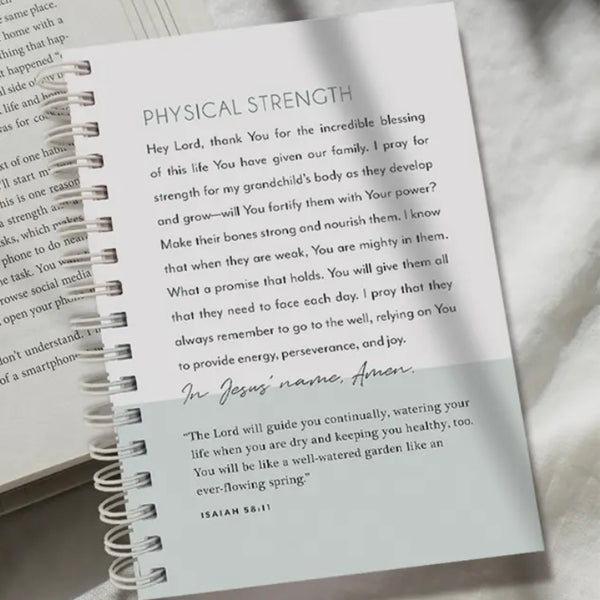 same place.
home with a
thing that hap-
t happened "
al side o
life and
was for
xt of one
'll start
this is one reason
a strength
sks, which makes
phone to do
he task. You
rowse social media
open your
don't understand. I
of a smartphone
PHYSICAL STRENGTH
Hey Lord, thank You for the incredible blessing
of this life You have given our family. I pray for
strength for my grandchild's body as they develop
and grow—will You fortify them with Your power?
Make their bones strong and nourish them. I know
that when they are weak, You are mighty in them.
What a promise that holds. You will give them all
that they need to face each day. I pray that they
always remember to go to the well, relying on You
to provide energy, perseverance, and joy.
In Jesus' name, Amen.
"The Lord will guide you continually, watering your
life when you are dry and keeping you healthy, too.
You will be like a well-watered garden like an
ever-flowing spring."
ISAIAH 58:11